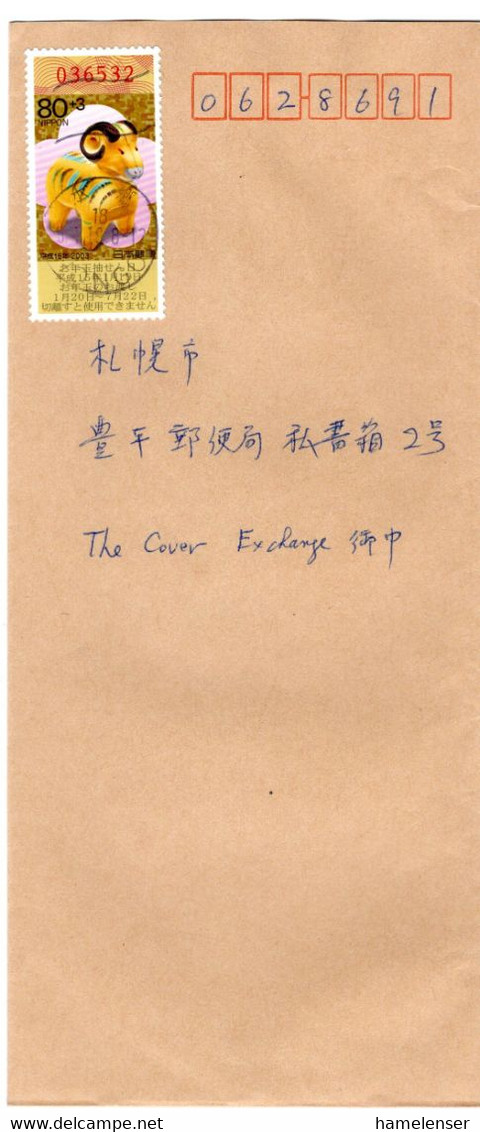 036532
80+3
NIPPON
平成15年・2003 日本郵便
お年玉抽せん日
平成15年1月19日
お年玉お渡し
1月20日~7月22日
切離すと使用できません
0 6 2 - 8 6 9 1
札幌市
豊平郵便局 私書箱 2号
The Cover Exchange 御中
www.delcampe.net
hamelenser